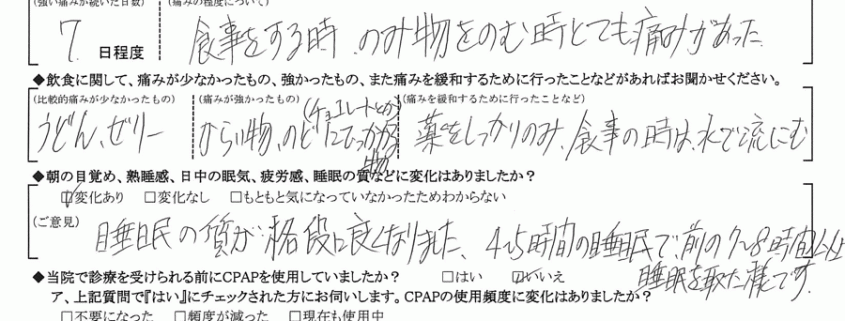 (強い痛みが続いた日数) (痛みの程度について)
7 日程度 食事をする時、のみ物をのむ時とても痛みがあった
◆飲食に関して、痛みが少なかったもの、強かったもの、また痛みを緩和するために行ったことなどがあればお聞かせください。
(比較的痛みが少なかったもの) (痛みが強かったもの) (痛みを緩和するために行ったことなど)
(チョコレートとか)
うどん、ゼリー からい物、のどにひっかかる 薬をしっかりのみ、食事の時は、水で流しこむ
物
◆朝の目覚め、熟睡感、日中の眠気、疲労感、睡眠の質などに変化はありましたか？
☑変化あり □変化なし □もともと気になっていなかったためわからない
(ご意見)
睡眠の質が格段に良くなりました、4~5時間の睡眠で、前の7~8時間以上
睡眠を取った様です。
◆当院で診療を受けられる前にCPAPを使用していましたか？ □はい ☑いいえ
ア、上記質問で『はい』にチェックされた方にお伺いします。CPAPの使用頻度に変化はありましたか？
□不要になった □頻度が減った □現在も使用中